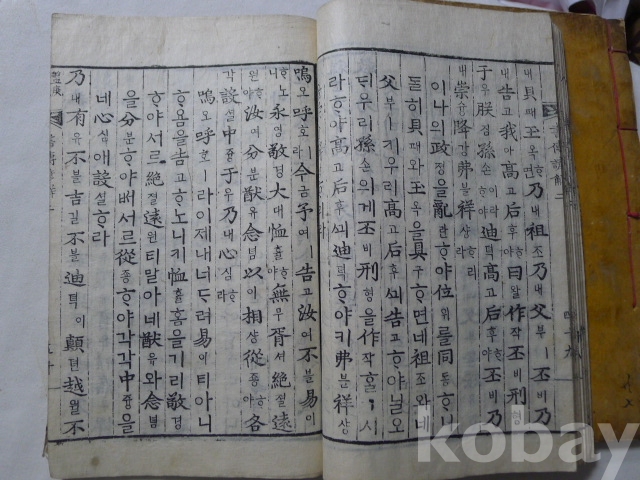 내貝패玉옥ᄒᆞ면乃내祖조乃내父부ㅣ丕비乃
내告고我아高고后후ᄒᆞ야曰왈作작丕비刑형
于우朕짐孫손이라迪뎍高고后후ᄒᆞ야丕비乃
내崇슝降강弗블祥샹ᄒᆞ리라
이나의政졍을亂란ᄒᆞ야位위를同동ᄒᆞ니
둘히貝패와玉옥을具구ᄒᆞ면네祖조와네
父부ㅣ키우리高고后후ᄭᅴ告고ᄒᆞ야닐오
ᄃᆡ우리孫손의게丕비刑형을作작홀ᄯᅵ시
라ᄒᆞ야高고后후ᄭᅴ迪뎍ᄒᆞ야키弗블祥샹
嗚오呼호ㅣ라今금予여ㅣ告고汝여不블易이
ᄒᆞ노니永영敬경大대恤휼ᄒᆞ야無무胥셔絶졀遠
원ᄒᆞ야汝여分분猷유念념以이相샹從죵ᄒᆞ야各
각設셜中듕于우乃내心심ᄒᆞ라
嗚오呼호ㅣ라이제너ᄃᆞ려易이티아니
ᄒᆞ욤을告고ᄒᆞ노니키恤휼홈을기리敬경
ᄒᆞ야서르絶졀遠원티말아네猷유와念념
을分분ᄒᆞ야ᄡᅥ서르從죵ᄒᆞ야각각中듕을
네心심애設셜ᄒᆞ라
乃내有유不블吉길不블迪뎍이顚뎐越월不
kobay